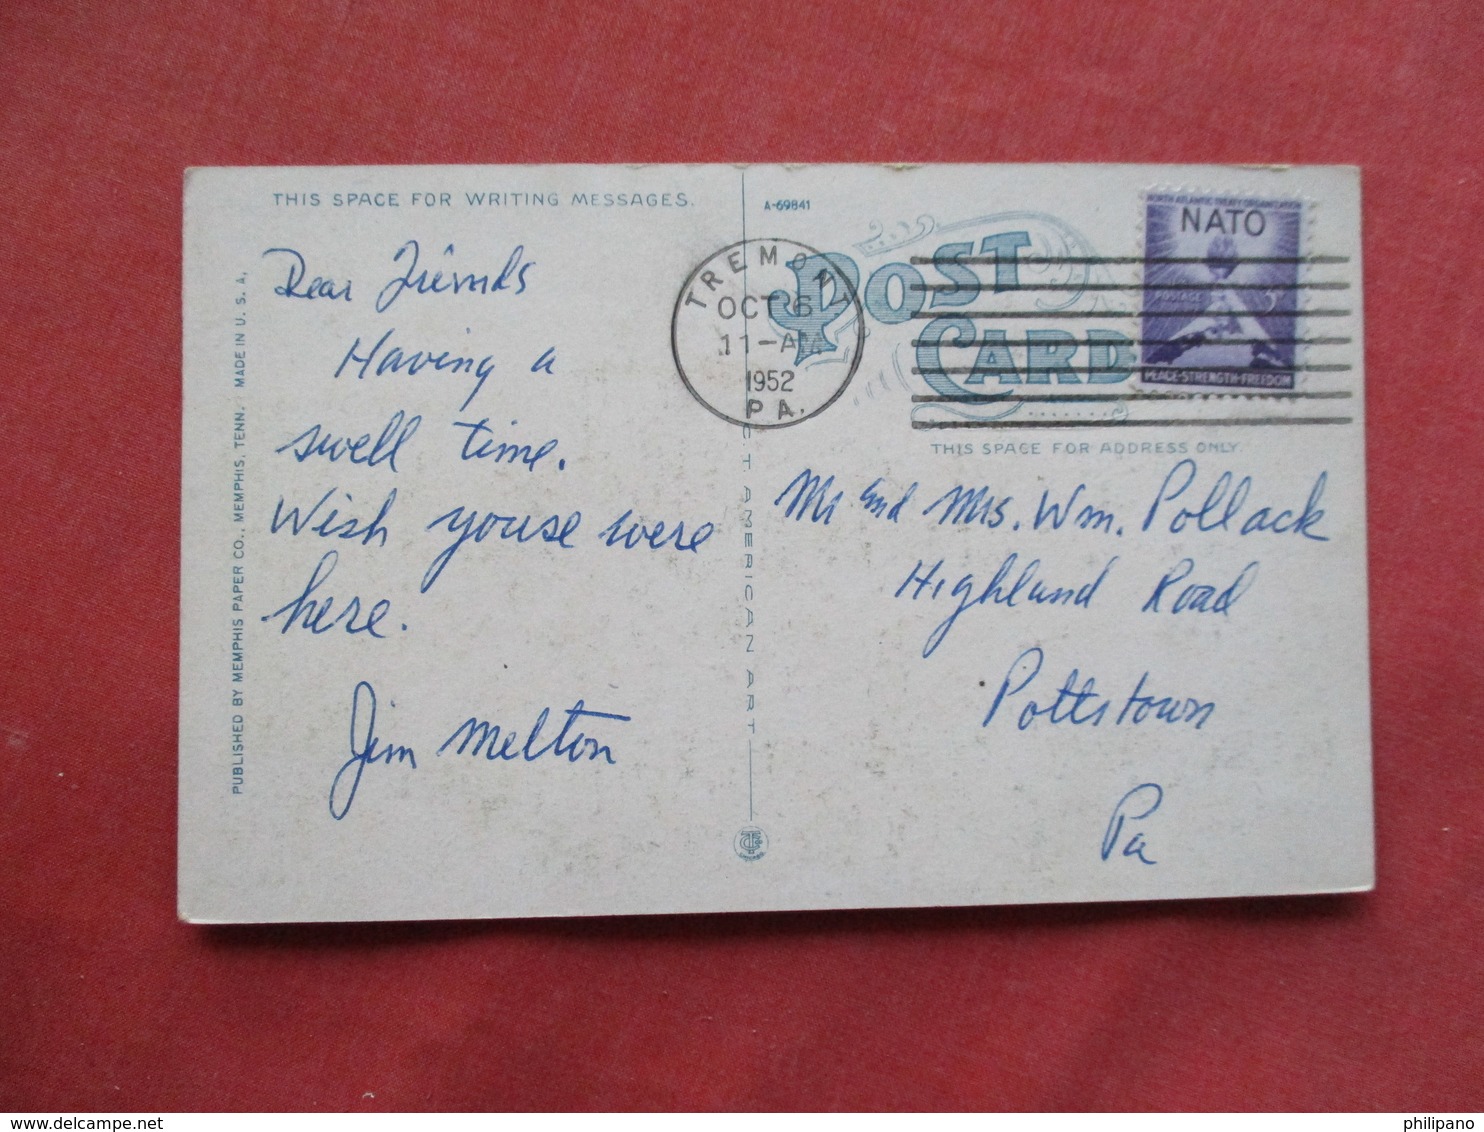 THIS SPACE FOR WRITING MESSAGES.
Dear Friends
Having a
swell time.
Wish youse were
here.
Jim Melton
PUBLISHED BY MEMPHIS PAPER CO., MEMPHIS, TENN. MADE IN U. S. A.
A-69841
POST CARD
TREMONT
OCT 6
11-AM
1952
PA.
NORTH ATLANTIC TREATY ORGANIZATION
NATO
POSTAGE 3¢
PEACE-STRENGTH-FREEDOM
THIS SPACE FOR ADDRESS ONLY.
Mr and Mrs. Wm. Pollack
Highland Road
Pottstown
Pa
CT. AMERICAN ART
philipano